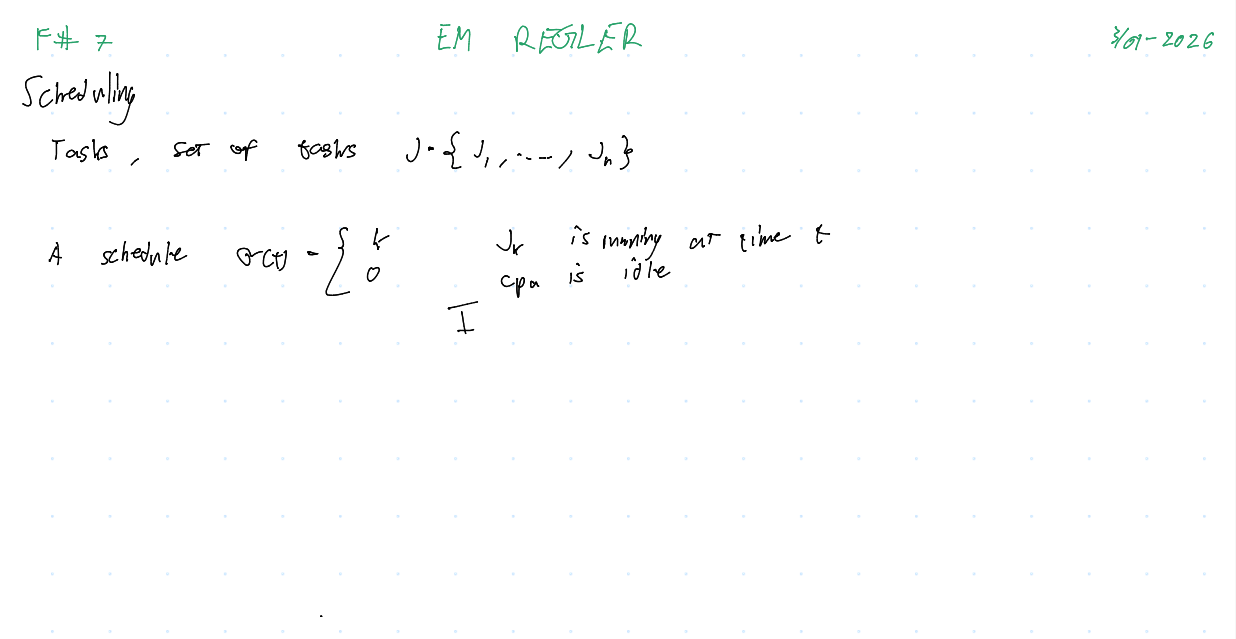 F# 7 EM REGLER 3/01-2026
Scheduling
Tasks, set of tasks J = { J1, ..., Jn }
A schedule σ(t) = { k Jk is running at time t
0 cpu is idle
I